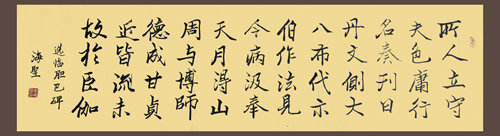 所人立守
夫色庸行
名奏刊日
丹文側大
八布代示
伯作法見
今病汲奉
天月得山
周与博師
德成甘貞
近皆流未
故於臣伽
选临胆巴碑
海聖